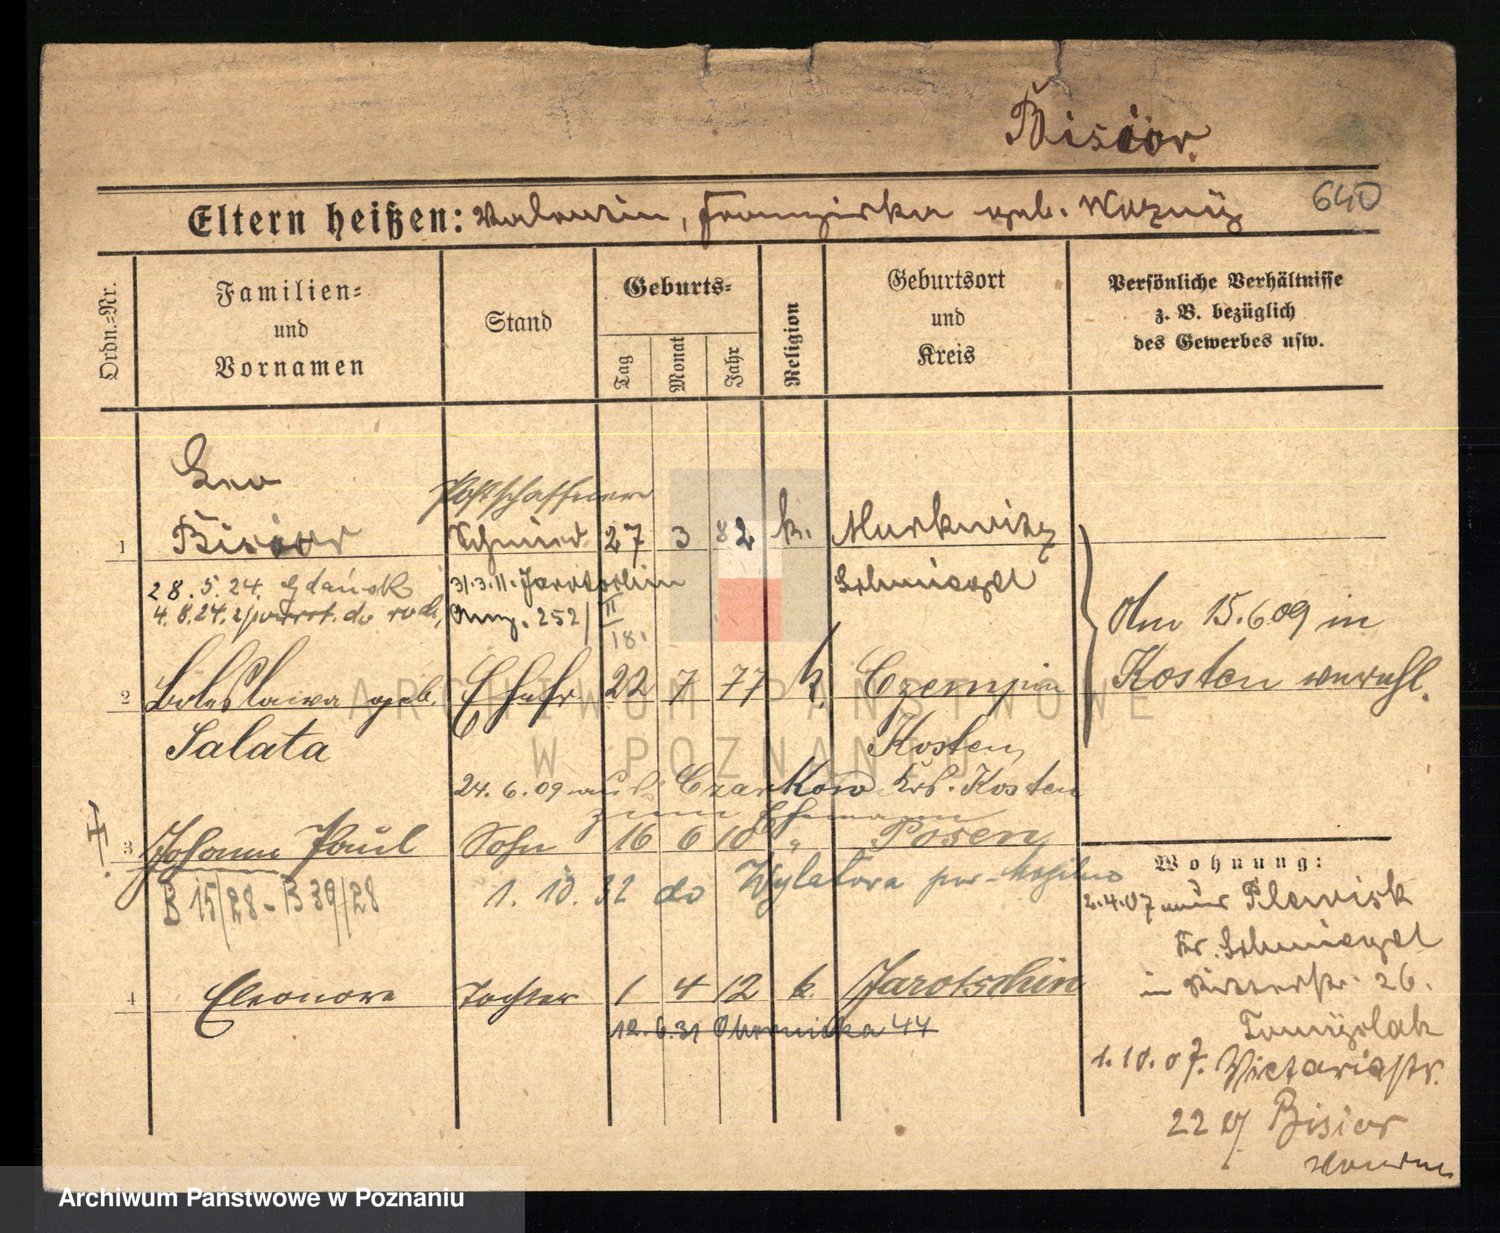 Bisior.
640
Eltern heißen: Valentin, Franziska geb. Wozny
Ordn.-Nr.
Familien-
und
Vornamen
Stand
Geburts-
Tag
Monat
Jahr
Religion
Geburtsort
und
Kreis
Persönliche Verhältnisse
z. B. bezüglich
des Gewerbes usw.
Leo
Postschaffner
1 Bisior Schmied 27 3 82 k.
28. 5. 24. Gdańsk 31.3.11. Jarotschin Schmiegel
4. 8. 24. powrót do
252
II
18.
Am 15.6.09 in
Kosten verehl.
2 Boleslawa geb. Ehefr 22 7 77 k. Czempin
Salata Kosten
24. 6. 09 aus Czarkow Krs. Kosten
zum Ehemann
3 Johann Paul Sohn 16 6 10 " Posen
B 15/28 - B 39/28 1. 10. 32 do Wylatowa pow. Mogilno
4 Eleonore Tochter 1 4 12 k. Jarotschin
12. 6. 31 Obornicka 44
Wohnung:
2.4.07 aus Plewisk
Kr. Schmiegel
in Ritterstr. 26.
1. 10. 07. Victoriastr.
22 Bisior
ARCHIWUM PAŃSTWOWE
W POZNANIU
Archiwum Państwowe w Poznaniu